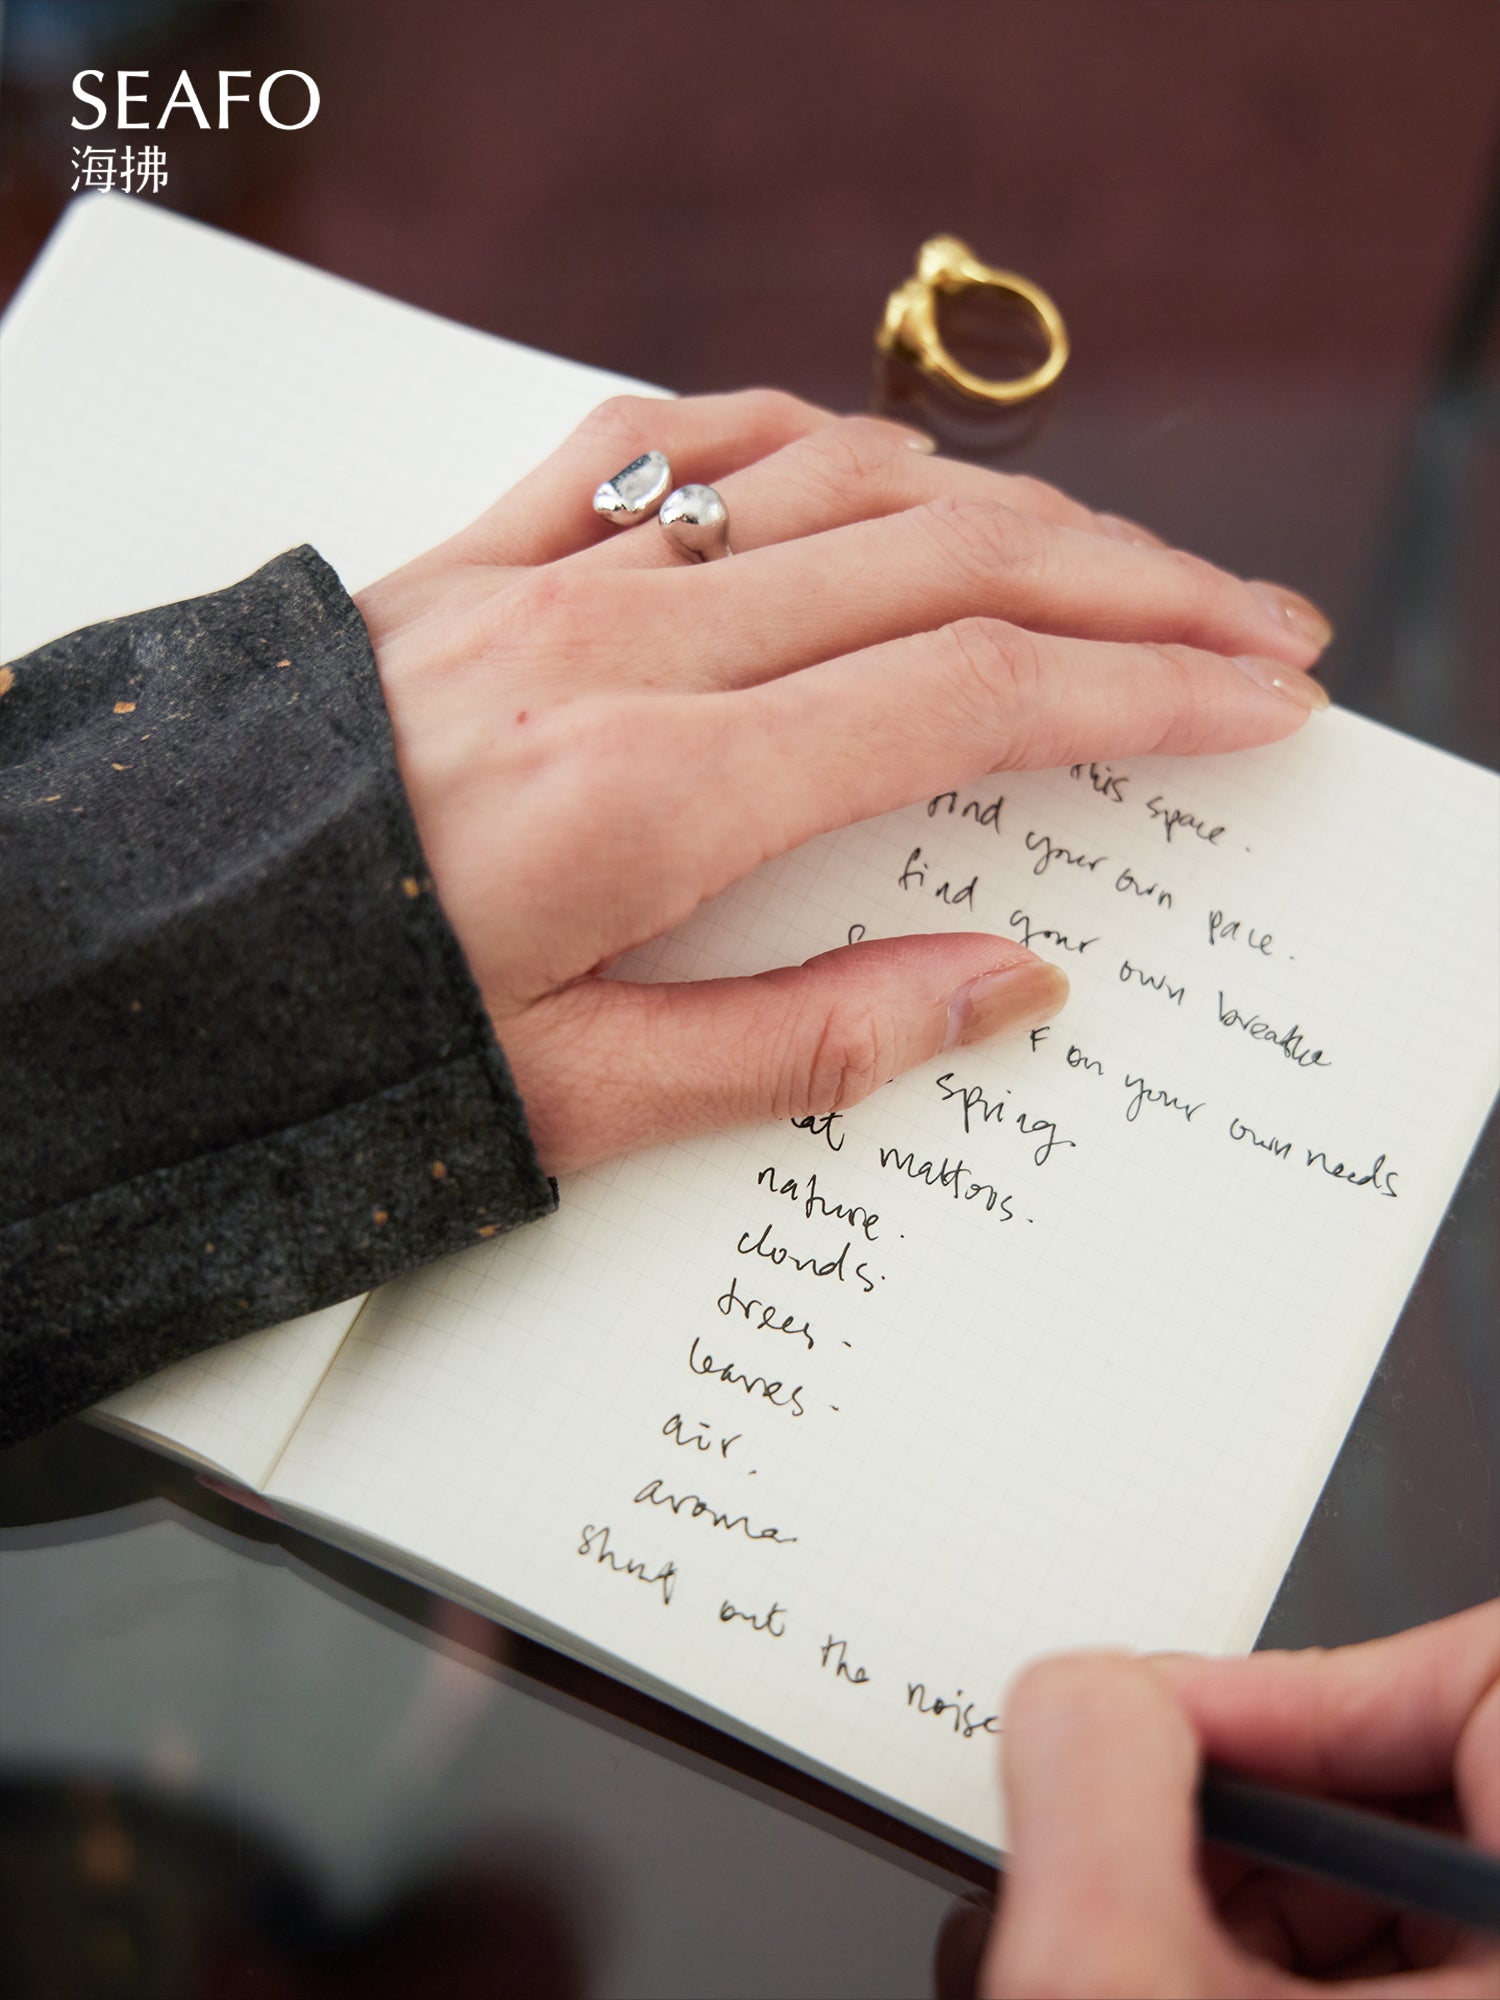 SEAFO
海拂
this space.
find your own pace.
find your own breathe
F on your own needs
spring.
matters.
nature.
clouds.
trees.
leaves.
air,
aroma
shut out the noise